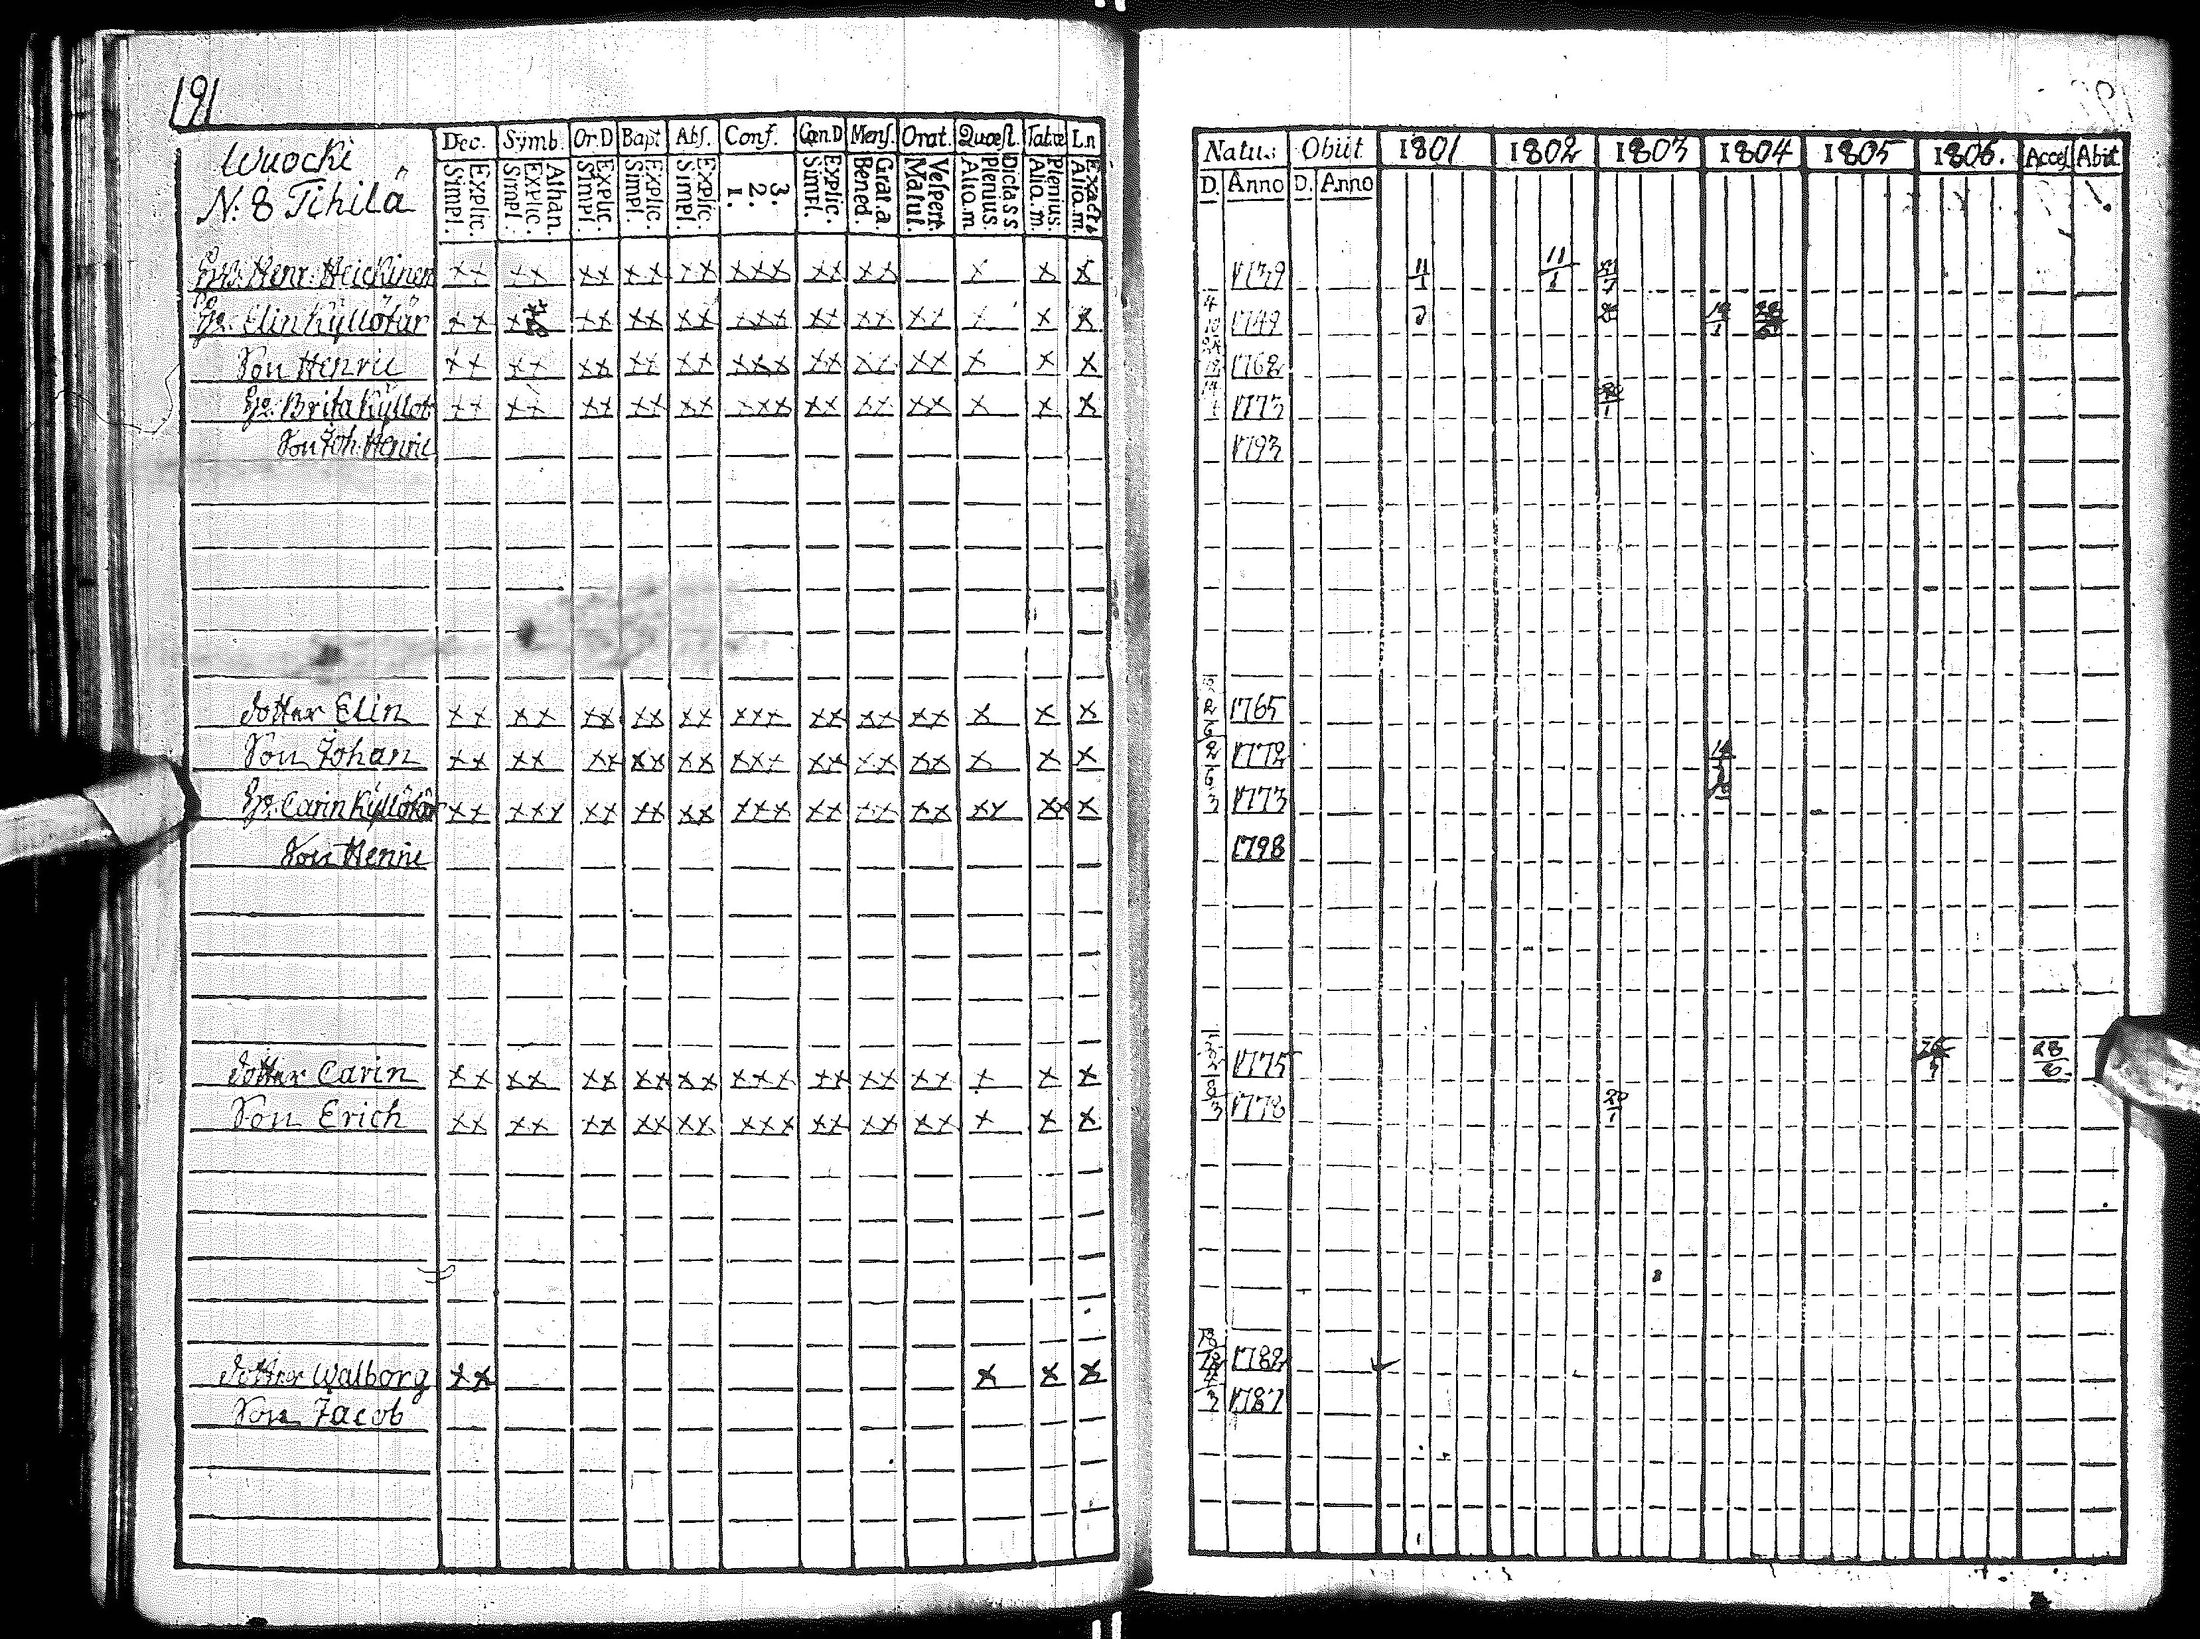 191
Wuocki
N: 8 Tihilä
Dec. Symb. Or.D Bapt Abs. Conf. Cœn.D Mens. Orat. Quæst. Tabæ Ln
Explic. Simpl. Athan. Explic. Simpl. Explic. Simpl. Explic. Simpl. Explic. Simpl. 3. 2. 1. Explic. Simpl. Grat.a. Bened. Vespert. Matut. Dicta S S Plenius. Alio.m Plenius. Alio.m. Exacte Alio.m.
Natu.s Obiit 1801 1802 1803 1804 1805 1806. Access Abiit
D. Anno D. Anno
Henr: Heickinen xx xx xx xx xx xxx xx xx x x x 1739 11/1 11/1
Elin Kyllötär xx xx xx xx xxx xx xx xx x x x 1749
Son Henric xx xx xx xx xx xxx xx xx xx x x x 1762
Brita Kyllöt xx xx xx xx xx xxx xx xx xx x x x 1773
Son Joh: Henric 1793
dotter Elin xx xx xx xx xx xxx xx xx xx x x x 1765
Son Johan xx xx xx xx xx xxx xx xx xx x x x 2/6 1772
Carin Kyllötär xx xxx xx xx xx xxx xx xx xx xx xx x 3 1773
Son Henric 1798
dotter Carin xx xx xx xx xx xxx xx xx xx x x x 1775 28/6
Son Erich xx xx xx xx xx xxx xx xx xx x x x 8/3 1778
dotter Walborg xx x x x 1782
Son Jacob 1787